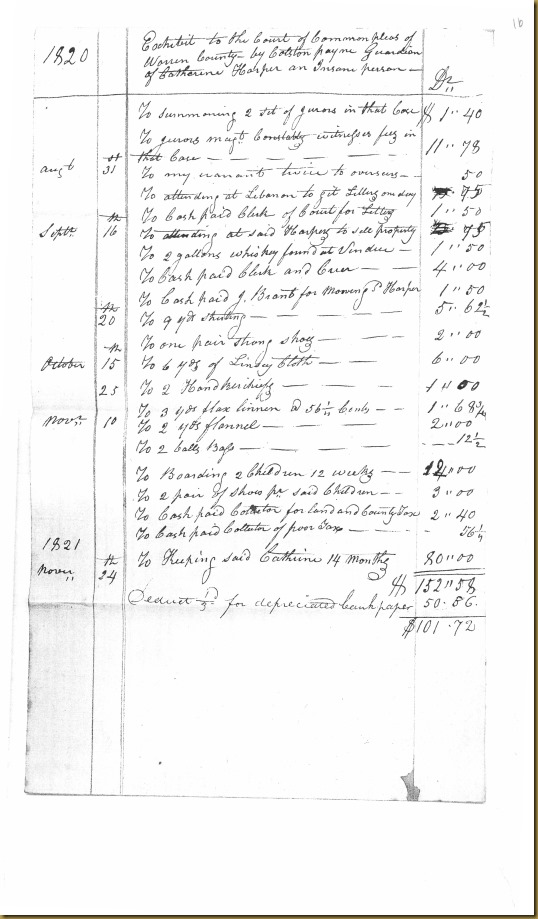 16
1820
Exhibit to the Court of Common pleas of
Warren County - by Colston payne Guardian
of Catherine Harper an Insane person -
Dr,,
To summoning 2 set of jurors in that Case $ 1"40
To jurors magt Constable witnesses fees in
that Case - - - - 11"78
augt 31st To my warrant twice to overseers - 50
To attending at Lebanon to get Letters one day 75
To Cash paid Clerk of Court for Letters 1"50
Septr 16th To attending at said Harpers to sell property 75
To 2 gallons whiskey found at Vendue - 1"50
To Cash paid Clerk and Crier - - 4"00
To Cash paid J. Brant for Moveing sd Harper 1"50
20th To 9 yds shirting - - - - 5"62½
To one pair strong shoes - - - 2"00
October 15th To 6 yds of Linsey Cloth - - - 6"00
25 To 2 Handkerchiefs - - - - 1"00
To 3 yds flax linnen @ 56¼ Cents - - 1"68¾
Novr 10 To 2 yds flannel - - - - 2"00
To 2 balls - - - - 12½
To Boarding 2 Children 12 weeks - - 12"00
To 2 pair of shoes pr said Children - - 3"00
To Cash paid Colletor for land and County Tax 2"40
To Cash paid Colletor of poor Tax - - - 56¼
1821
Novr,, 24th To Keeping said Cathrine 14 Months 80"00
$ 152"58
Deduct ⅓rd for depreciated bank paper 50.86.
$101.72